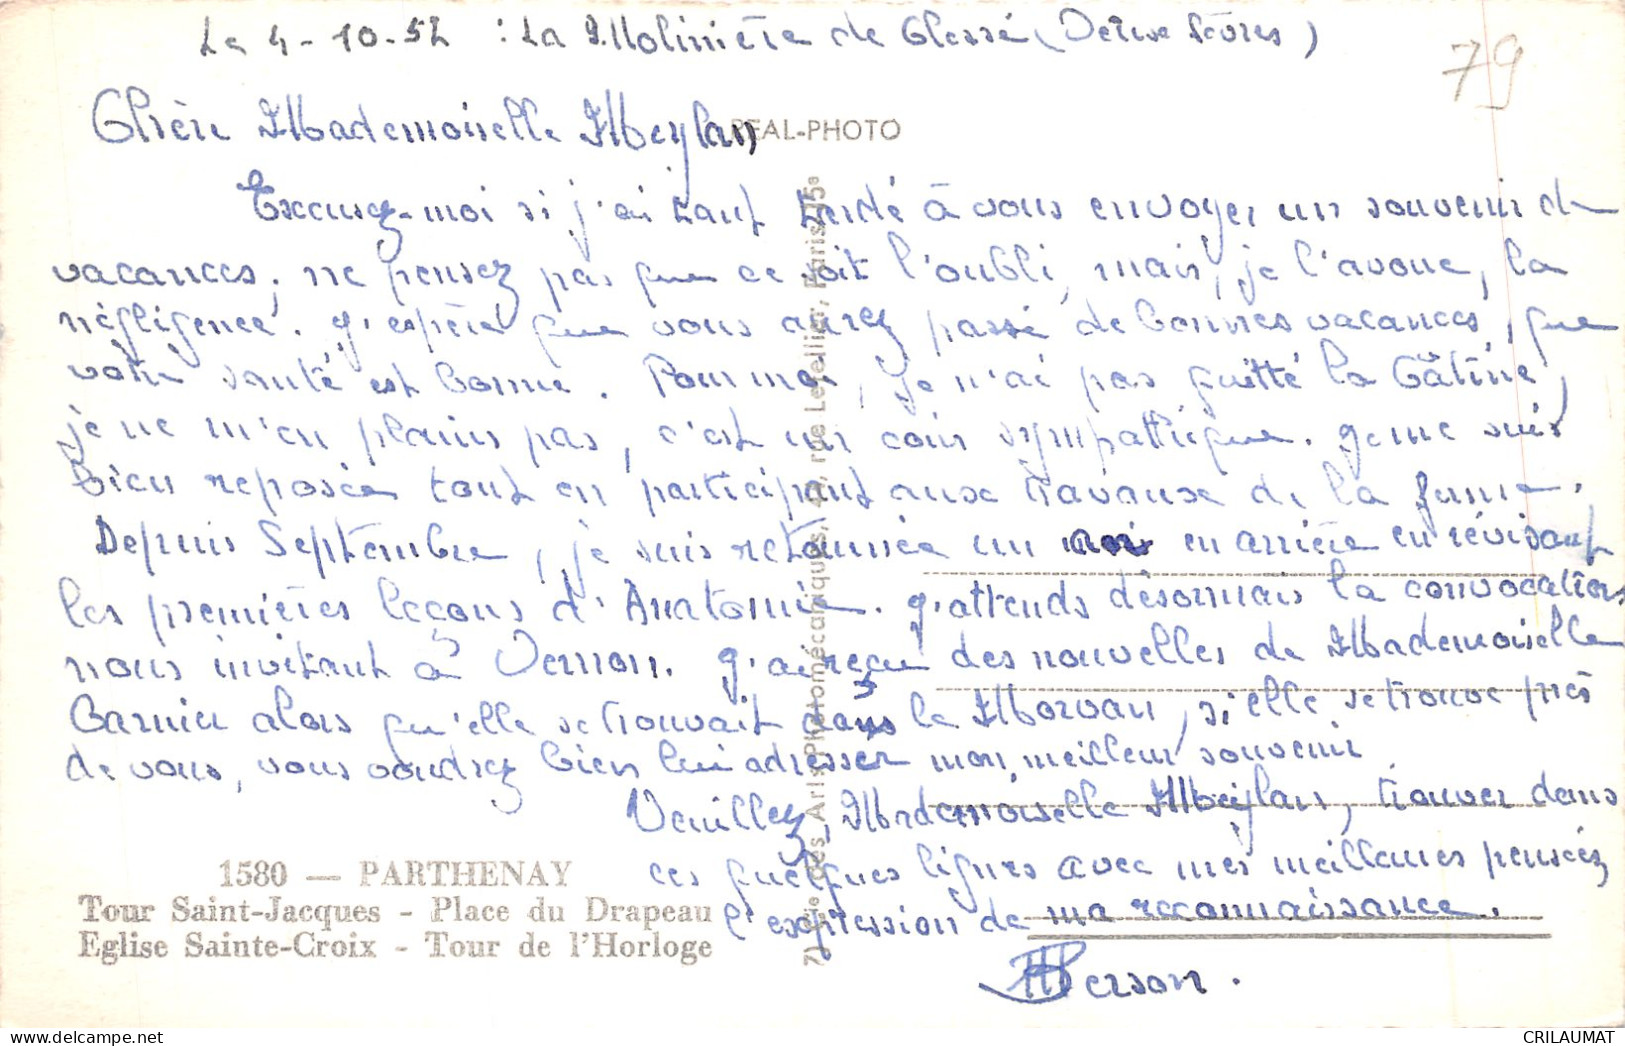 Le 4-10-52 : La Molinière de Clessé (Deux Sèvres)
79
Chère Mademoiselle Meylan
REAL-PHOTO
Excusez-moi si j'ai tant tardé à vous envoyer un souvenir de
vacances; ne pensez pas que ce soit l'oubli, mais, je l'avoue, la
négligence. J'espère que vous aurez passé de bonnes vacances, que
votre santé est bonne. Pour moi, je n'ai pas quitté la Gâtine,
je ne m'en plains pas, c'est un coin sympathique. Je me suis
bien reposée tout en participant aux travaux de la ferme.
Depuis Septembre, je suis retournée un an en arrière en révisant
les premières leçons d'Anatomie. J'attends désormais la convocation
nous invitant à Vernon. J'ai reçu des nouvelles de Mademoiselle
Garnier alors qu'elle se trouvait dans le Morvan, si elle se trouve près
de vous, vous voudrez bien lui adresser mon meilleur souvenir.
Veuillez, Mademoiselle Meylan, trouver dans
ces quelques lignes avec mes meilleures pensées
l'expression de ma reconnaissance.
Person.
1580 — PARTHENAY
Tour Saint-Jacques - Place du Drapeau
Eglise Sainte-Croix - Tour de l'Horloge
des Arts Photomécaniques, rue Letellier, Paris-15e
CRILAUMAT